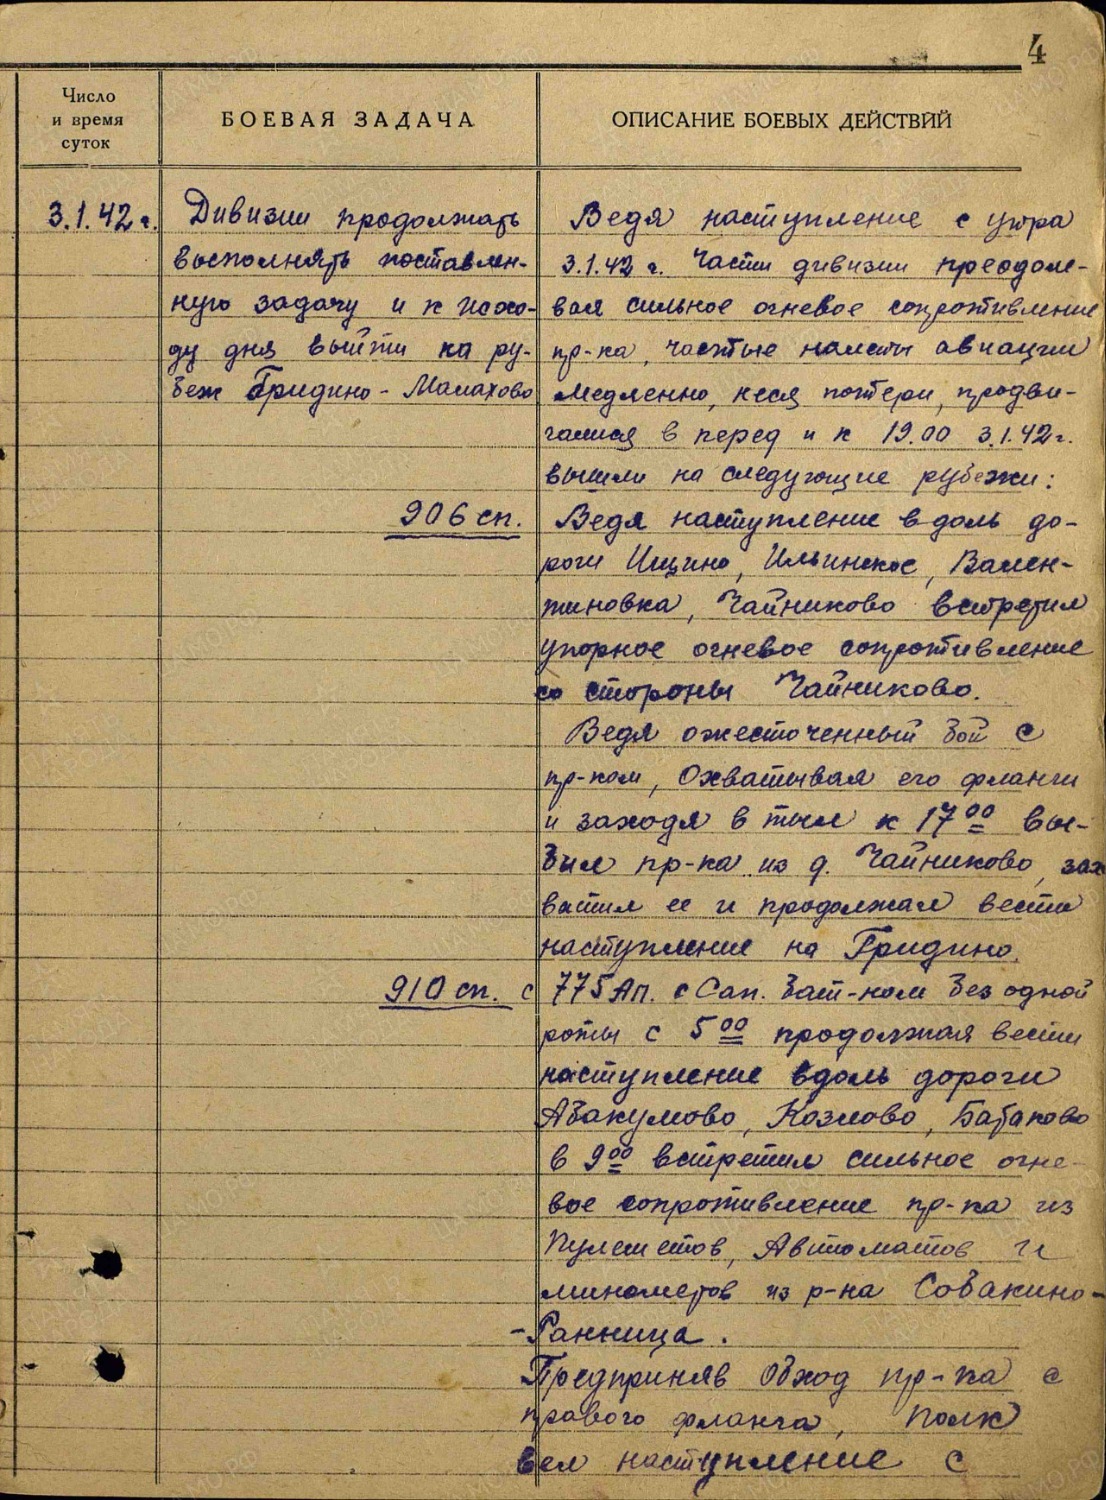 4
Число
и время
суток
БОЕВАЯ ЗАДАЧА
ОПИСАНИЕ БОЕВЫХ ДЕЙСТВИЙ
3.1.42 г.
Дивизии продолжать
выполнять поставлен-
ную задачу и к исхо-
ду дня выйти на ру-
беж Гридино - Малахово
Ведя наступление с утра
3.1.42 г. Части дивизии преодоле-
вая сильное огневое сопротивление
пр-ка, частые налеты авиации
медленно, неся потери, продви-
гались в перед и к 19.00 3.1.42 г.
вышли на следующие рубежи:
906 сп.
Ведя наступление вдоль до-
роги Ищино, Ильинское, Вален-
тиновка, Чайниково встретил
упорное огневое сопротивление
со стороны Чайниково.
Ведя ожесточенный бой с
пр-ком, Охватывая его фланги
и заходя в тыл к 17 00 вы-
бил пр-ка из д. Чайниково, зах
ватил ее и продолжал вести
наступление на Гридино.
910 сп. с 775 Ап. с Сап. бат-ном без одной
роты с 5 00 продолжая вести
наступление вдоль дороги
Абакумово, Козлово, Бабаково
в 9 00 встретил сильное огне-
вое сопротивление пр-ка из
Пулеметов, Автоматов и
минометов из р-на Собакино-
-Ранница.
Предприняв Обход пр-ка с
правого фланга, Полк
вел наступление с